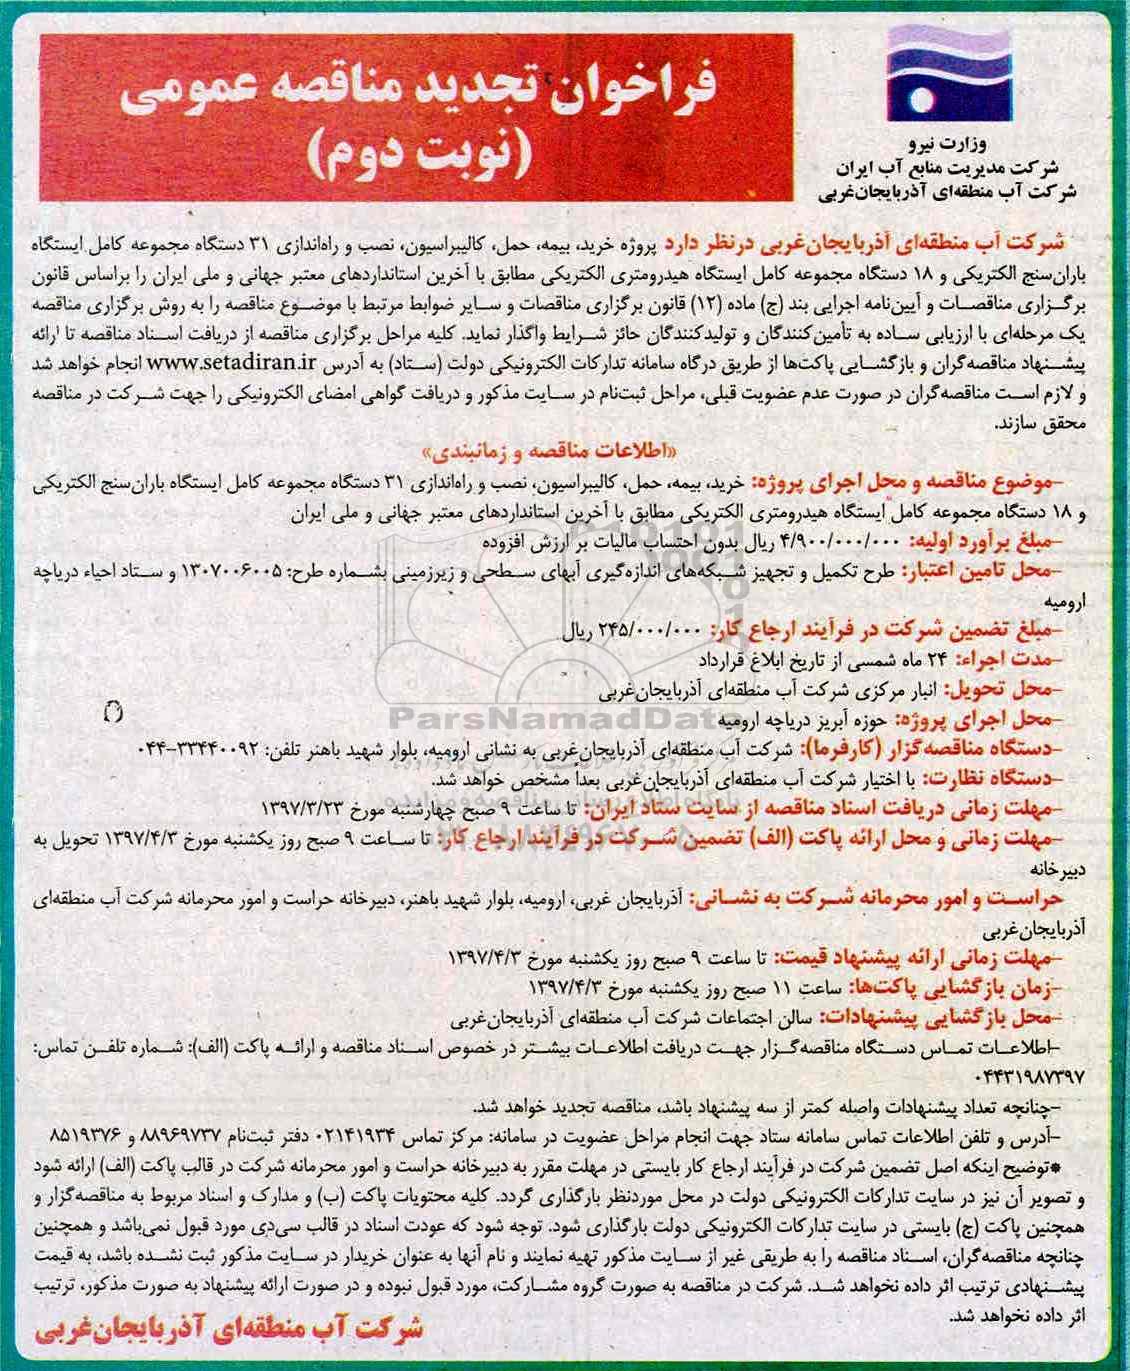 وزارت نیرو
شرکت مدیریت منابع آب ایران
شرکت آب منطقه‌ای آذربایجان‌غربی
فراخوان تجدید مناقصه عمومی
(نوبت دوم)
شرکت آب منطقه‌ای آذربایجان‌غربی درنظر دارد پروژه خرید، بیمه، حمل، کالیبراسیون، نصب و راه‌اندازی ۳۱ دستگاه مجموعه کامل ایستگاه
باران‌سنج الکتریکی و ۱۸ دستگاه مجموعه کامل ایستگاه هیدرومتری الکتریکی مطابق با آخرین استانداردهای معتبر جهانی و ملی ایران را براساس قانون
برگزاری مناقصات و آیین‌نامه اجرایی بند (ج) ماده (۱۲) قانون برگزاری مناقصات و سایر ضوابط مرتبط با موضوع مناقصه را به روش برگزاری مناقصه
یک مرحله‌ای با ارزیابی ساده به تأمین‌کنندگان و تولیدکنندگان حائز شرایط واگذار نماید. کلیه مراحل برگزاری مناقصه از دریافت اسناد مناقصه تا ارائه
پیشنهاد مناقصه‌گران و بازگشایی پاکت‌ها از طریق درگاه سامانه تدارکات الکترونیکی دولت (ستاد) به آدرس www.setadiran.ir انجام خواهد شد
و لازم است مناقصه‌گران در صورت عدم عضویت قبلی، مراحل ثبت‌نام در سایت مذکور و دریافت گواهی امضای الکترونیکی را جهت شرکت در مناقصه
محقق سازند.
«اطلاعات مناقصه و زمانبندی»
-موضوع مناقصه و محل اجرای پروژه: خرید، بیمه، حمل، کالیبراسیون، نصب و راه‌اندازی ۳۱ دستگاه مجموعه کامل ایستگاه باران‌سنج الکتریکی
و ۱۸ دستگاه مجموعه کامل ایستگاه هیدرومتری الکتریکی مطابق با آخرین استانداردهای معتبر جهانی و ملی ایران
-مبلغ برآورد اولیه: ۴/۹۰۰/۰۰۰/۰۰۰ ریال بدون احتساب مالیات بر ارزش افزوده
-محل تامین اعتبار: طرح تکمیل و تجهیز شبکه‌های اندازه‌گیری آبهای سطحی و زیرزمینی بشماره طرح: ۱۳۰۷۰۰۶۰۰۵ و ستاد احیاء دریاچه
ارومیه
-مبلغ تضمین شرکت در فرآیند ارجاع کار: ۲۴۵/۰۰۰/۰۰۰ ریال
-مدت اجراء: ۲۴ ماه شمسی از تاریخ ابلاغ قرارداد
-محل تحویل: انبار مرکزی شرکت آب منطقه‌ای آذربایجان‌غربی
-محل اجرای پروژه: حوزه آبریز دریاچه ارومیه
-دستگاه مناقصه‌گزار (کارفرما): شرکت آب منطقه‌ای آذربایجان‌غربی به نشانی ارومیه، بلوار شهید باهنر تلفن: ۳۳۴۴۰۰۹۲-۰۴۴
-دستگاه نظارت: با اختیار شرکت آب منطقه‌ای آذربایجان‌غربی بعداً مشخص خواهد شد.
-مهلت زمانی دریافت اسناد مناقصه از سایت ستاد ایران: تا ساعت ۹ صبح چهارشنبه مورخ ۱۳۹۷/۳/۲۳
-مهلت زمانی و محل ارائه پاکت (الف) تضمین شرکت در فرآیند ارجاع کار: تا ساعت ۹ صبح روز یکشنبه مورخ ۱۳۹۷/۴/۳ تحویل به
دبیرخانه
حراست و امور محرمانه شرکت به نشانی: آذربایجان غربی، ارومیه، بلوار شهید باهنر، دبیرخانه حراست و امور محرمانه شرکت آب منطقه‌ای
آذربایجان‌غربی
-مهلت زمانی ارائه پیشنهاد قیمت: تا ساعت ۹ صبح روز یکشنبه مورخ ۱۳۹۷/۴/۳
-زمان بازگشایی پاکت‌ها: ساعت ۱۱ صبح روز یکشنبه مورخ ۱۳۹۷/۴/۳
-محل بازگشایی پیشنهادات: سالن اجتماعات شرکت آب منطقه‌ای آذربایجان‌غربی
-اطلاعات تماس دستگاه مناقصه‌گزار جهت دریافت اطلاعات بیشتر در خصوص اسناد مناقصه و ارائه پاکت (الف): شماره تلفن تماس:
۰۴۴۳۱۹۸۷۳۹۷
-چنانچه تعداد پیشنهادات واصله کمتر از سه پیشنهاد باشد، مناقصه تجدید خواهد شد.
-آدرس و تلفن اطلاعات تماس سامانه ستاد جهت انجام مراحل عضویت در سامانه: مرکز تماس ۰۲۱۴۱۹۳۴ دفتر ثبت‌نام ۸۸۹۶۹۷۳۷ و ۸۵۱۹۳۷۶
*توضیح اینکه اصل تضمین شرکت در فرآیند ارجاع کار بایستی در مهلت مقرر به دبیرخانه حراست و امور محرمانه شرکت در قالب پاکت (الف) ارائه شود
و تصویر آن نیز در سایت تدارکات الکترونیکی دولت در محل موردنظر بارگذاری گردد. کلیه محتویات پاکت (ب) و مدارک و اسناد مربوط به مناقصه‌گزار و
همچنین پاکت (ج) بایستی در سایت تدارکات الکترونیکی دولت بارگذاری شود. توجه شود که عودت اسناد در قالب سی‌دی مورد قبول نمی‌باشد و همچنین
چنانچه مناقصه‌گران، اسناد مناقصه را به طریقی غیر از سایت مذکور تهیه نمایند و نام آنها به عنوان خریدار در سایت مذکور ثبت نشده باشد، به قیمت
پیشنهادی ترتیب اثر داده نخواهد شد. شرکت در مناقصه به صورت گروه مشارکت، مورد قبول نبوده و در صورت ارائه پیشنهاد به صورت مذکور، ترتیب
اثر داده نخواهد شد.
شرکت آب منطقه‌ای آذربایجان‌غربی
ParsNamadData